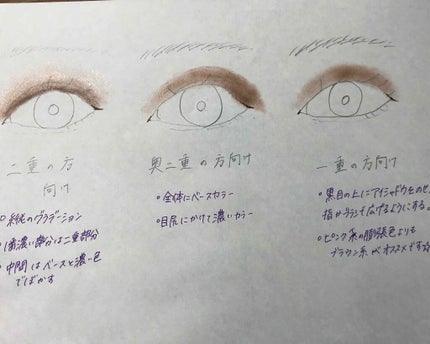 二重の方
向け
・縦のグラデーション
・1番濃い部分は二重部分
・中間はベースと濃い色
でぼかす
奥二重の方向け
・全体にベースカラー
・目尻にかけて濃いカラー
一重の方向け
・黒目の上にアイシャドウをのせ、
指やブラシで広げるようにする。
・ピンク系の膨張色よりも
ブラウン系がオススメです☆